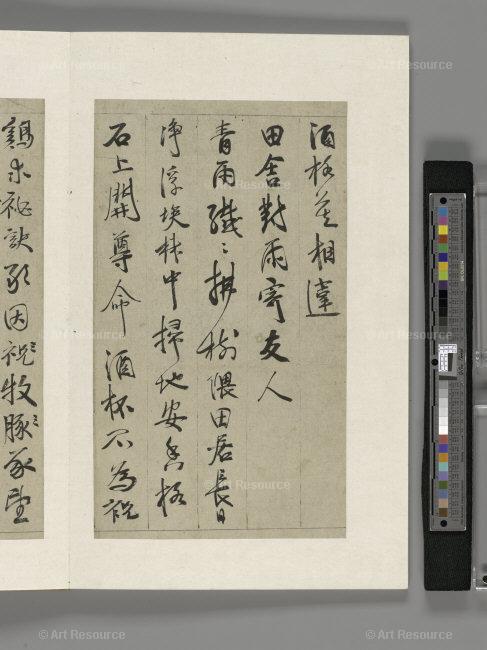 酒杯莫相違
田舍對雨寄友人
青雨纖〻拂樹隈田居長日
淨浮埃林中掃地安香
石上開尊命酒杯不為祝
鷄求祕訣因祝牧豚
© Art Resource
© Art Resource
© Art Resource
© Art Resource
© Art Resource
© Art Resource
© Art Resource
© Art Resource